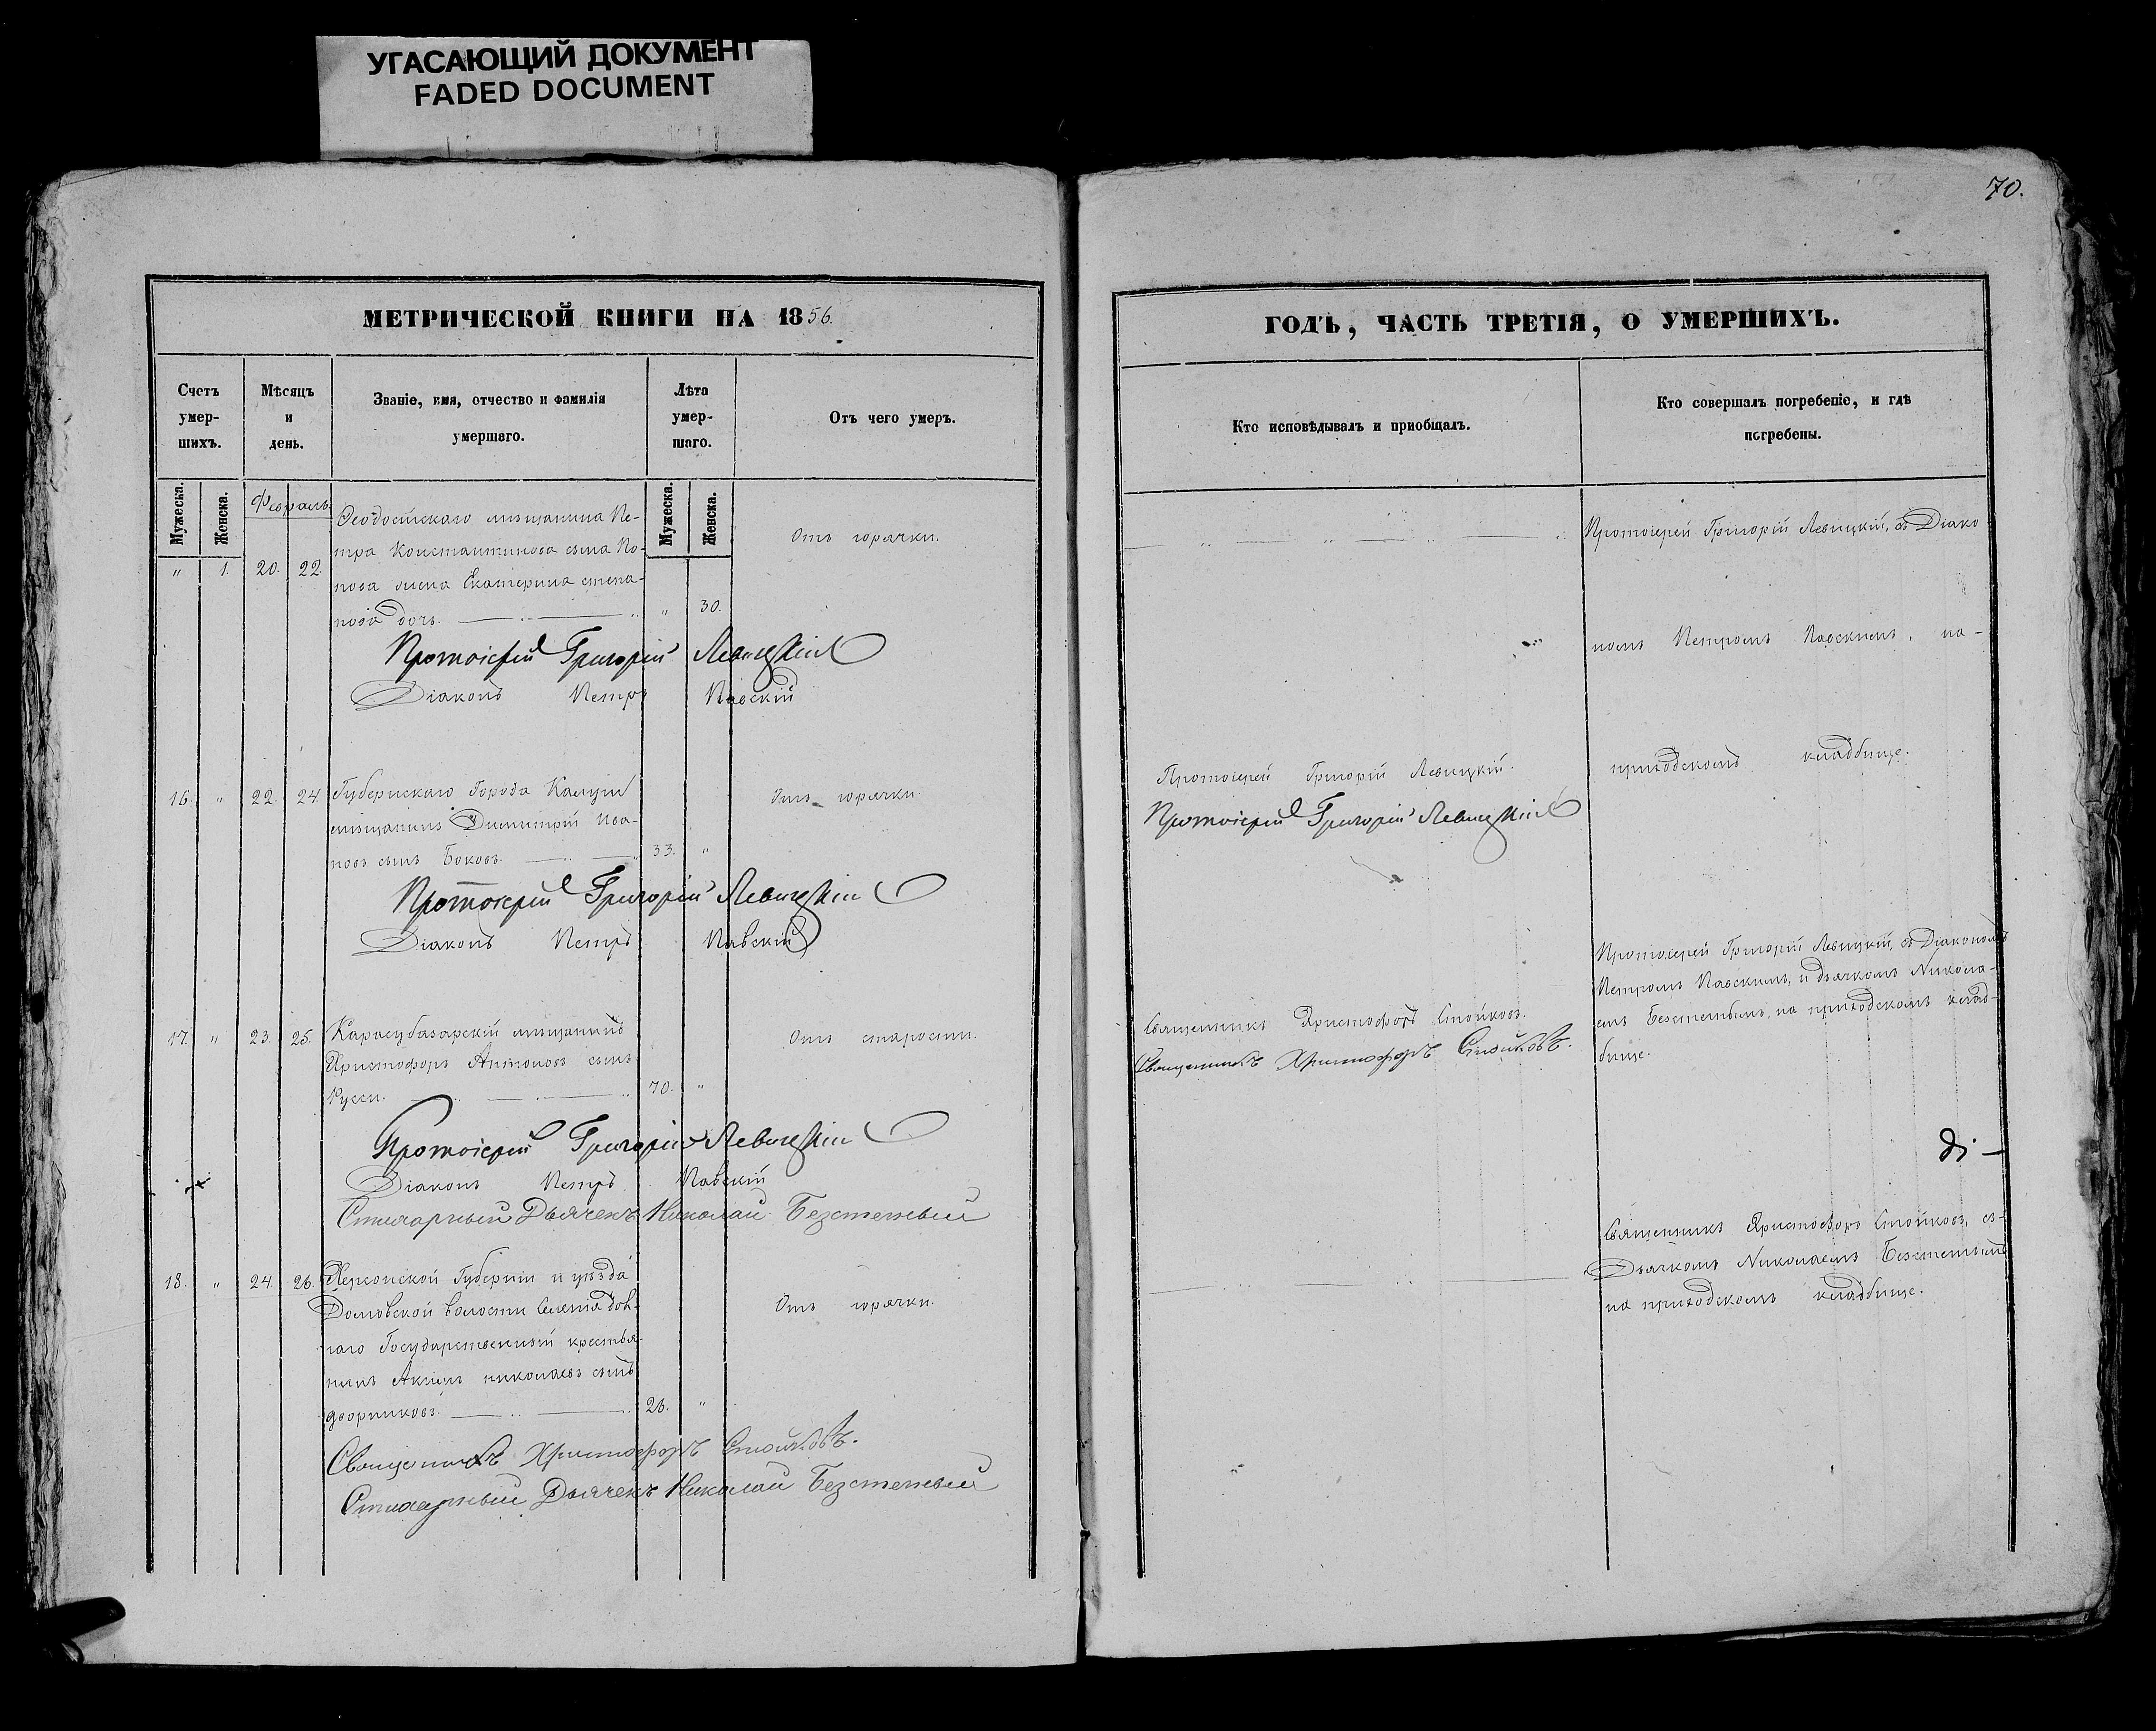 УГАСАЮЩИЙ ДОКУМЕНТ
FADED DOCUMENT
70.
МЕТРИЧЕСКОЙ КНИГИ НА 1856.
Счетъ умер-шихъ.
Мѣсяцъ и день.
Званіе, имя, отчество и фамилія умершаго.
Лѣта умер-шаго.
Отъ чего умеръ.
Мужеска.
Женска.
Февраль.
Мужеска.
Женска.
Ѳеодосійскаго мѣщанина Пе-
тра Константинова сына По-
" 1. 20. 22. пова жена Екатерина степа-
нова дочь. " 30.
Отъ горячки.
Протоіерей Григорій Левицкій
Діаконъ Петръ Павскій
16. " 22. 24. Губернскаго Города Калуги
мѣщанинъ Димитрій Ива-
новъ сынъ Боковъ. 33. "
Отъ горячки.
Протоіерей Григорій Левицкій
Діаконъ Петръ Павскій
17. " 23. 25. Карасубазарскій мѣщанинъ
Христофоръ Антоновъ сынъ
Русси. 70. "
Отъ старости.
Протоіерей Григорій Левицкій
Діаконъ Петръ Павскій
Стихарный Дьячекъ Николай Безстежный
18. " 24. 26. Херсонской Губерніи и уѣзда
волости
Государственный крестья-
нинъ Акимъ николаевъ сынъ
дворниковъ. 26. "
Отъ горячки.
Священникъ Христофоръ Стойковъ.
Стихарный Дьячекъ Николай Безстежный
ГОДЪ, ЧАСТЬ ТРЕТІЯ, О УМЕРШИХЪ.
Кто исповѣдывалъ и приобщалъ.
Кто совершалъ погребеніе, и гдѣ погребены.
Протоіерей Григорій Левицкій, съ Діако
номъ Петромъ Павскимъ, на-
приходскомъ кладбище.
Протоіерей Григорій Левицкій.
Протоіерей Григорій Левицкій
Протоіерей Григорій Левицкій, съ Діакономъ
Петромъ Павскимъ, и дьячкомъ Никола-
емъ Безстежнымъ, на приходскомъ клад-
бище.
Священникъ Христофоръ Стойковъ.
Священникъ Христофоръ Стойковъ.
Священникъ Христофоръ Стойковъ, съ-
Дьячкомъ Николаемъ Безстежнымъ
на приходскомъ кладбище.